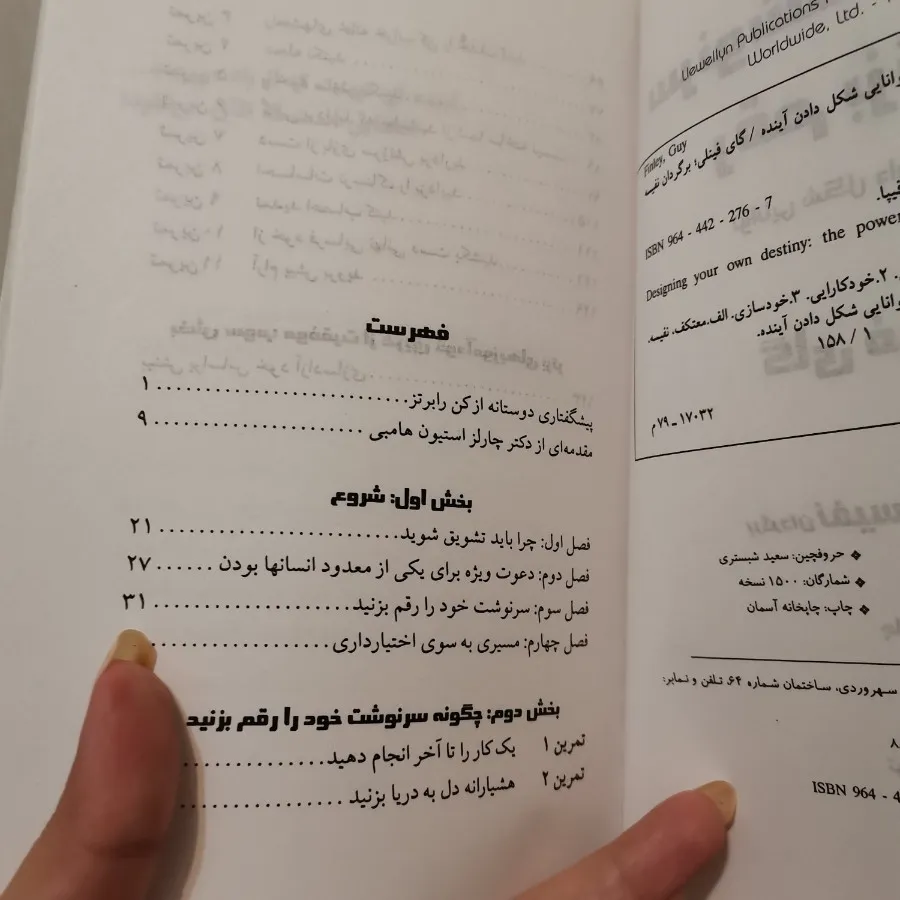 فهرست
پیشگفتاری دوستانه از کن رابرتز ........................ ۱
مقدمه‌ای از دکتر چارلز استیون هامبی .................... ۹
بخش اول: شروع
فصل اول: چرا باید تشویق شوید ........................ ۲۱
فصل دوم: دعوت ویژه برای یکی از معدود انسانها بودن ...... ۲۷
فصل سوم: سرنوشت خود را رقم بزنید .................... ۳۱
فصل چهارم: مسیری به سوی اختیارداری ..................
بخش دوم: چگونه سرنوشت خود را رقم بزنید
تمرین ۱ یک کار را تا آخر انجام دهید ..............
تمرین ۲ هشیارانه دل به دریا بزنید ................
Llewellyn Publications
Worldwide, Ltd. -
Finley, Guy
شکل دادن آینده / گای فینلی؛ برگردان نفیسه
ISBN 964 - 442 - 276 - 7
فیپا.
Designing your own destiny: the power
۲. خودکارایی. ۳. خودسازی. الف. معتکف، نفیسه.
شکل دادن آینده.
۱۵۸ / ۱
۱۷۰۳۲ ـ ۷۹م
❖ حروفچین: سعید شبستری
❖ شمارگان: ۱۵۰۰ نسخه
❖ چاپ: چاپخانه آسمان
سهروردی، ساختمان شماره ۶۴، تلفن و نمابر:
۸
ISBN 964 - 4